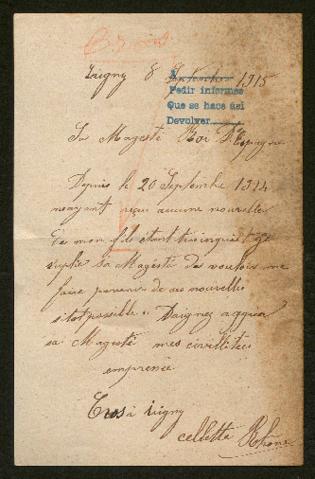 Irigny 8 Septembre 1915
A
Pedir informes
Que se hace asi
Devolver
Sa Magesté Roi D'Espagne
Depuis le 20 Septembre 1914
neayant reçu aucune nouvelle
de mon fils étant très inquiet je
suplie sa Magesté de vouloir me
faire parvenir de ses nouvelles
sitot possible. Daignez agréer
sa Magesté mes civilitées
empressée
Cros à Irigny
Rhone